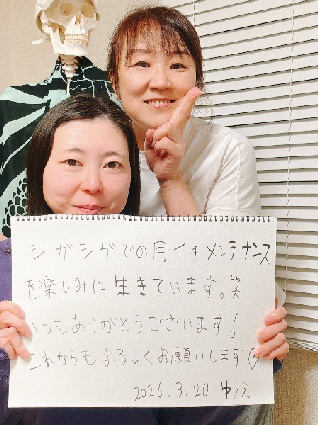 シガシガでの月イチメンテナンス
を楽しみに生きています。笑
いつもありがとうございます!
これからもよろしくお願いします